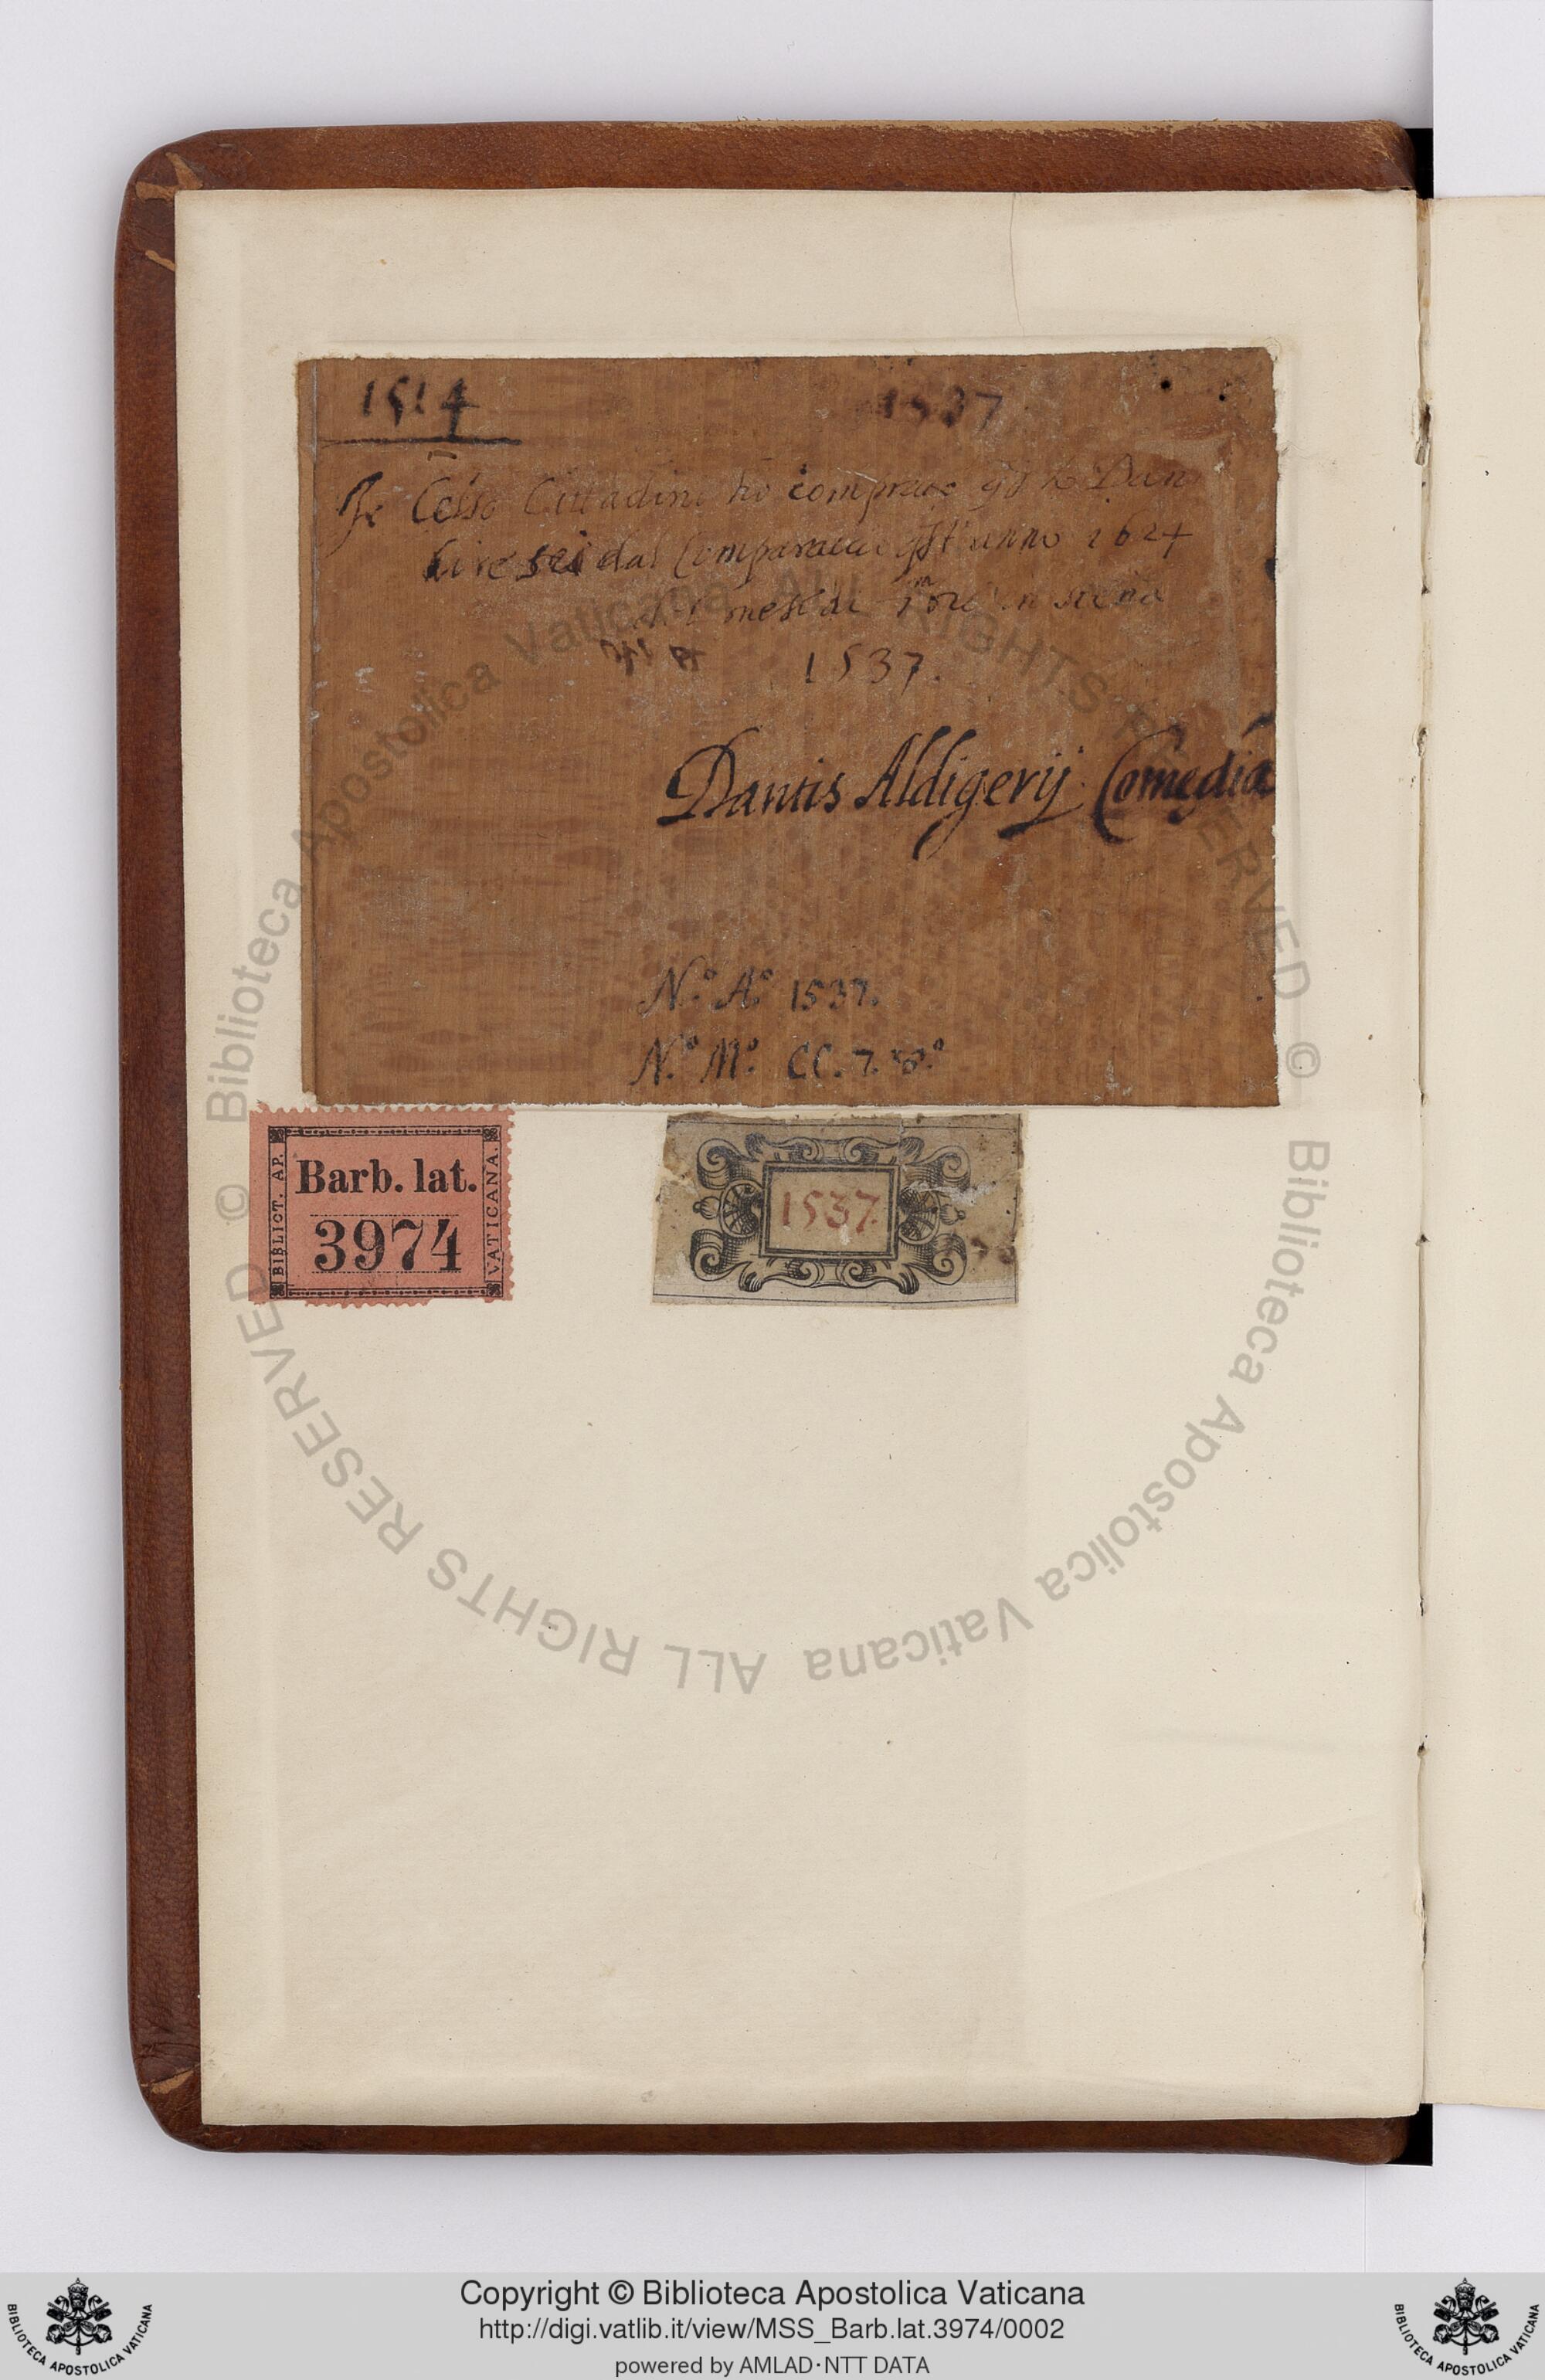 1514
1537
Io Celso Cittadini hò comprato qsto Dan
lire sei dal Comparacci qst' anno 1624
mese di in siena
1537.
Dantis Aldigerij Comedia
N.º A.º 1537.
N.º M.º CC. 7. 8.º
BIBLICT. AP. VATICANA.
Barb. lat.
3974
1537
© Biblioteca Apostolica Vaticana ALL RIGHTS RESERVED © Biblioteca Apostolica Vaticana ALL RIGHTS RESERVED
Copyright © Biblioteca Apostolica Vaticana
http://digi.vatlib.it/view/MSS_Barb.lat.3974/0002
powered by AMLAD·NTT DATA
BIBLIOTECA APOSTOLICA VATICANA
BIBLIOTECA APOSTOLICA VATICANA